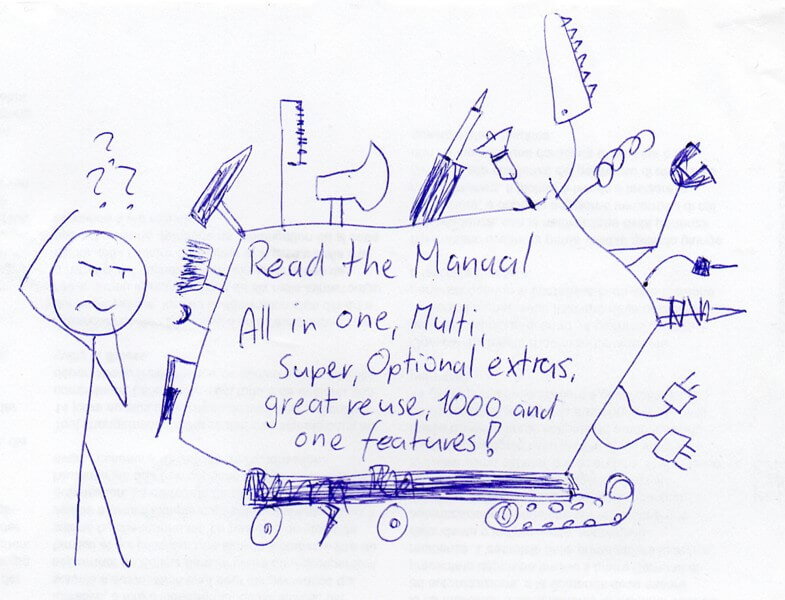 ? 
? ?
Read the Manual
All in one, Multi,
super, Optional extras,
great reuse, 1000 and
one features!